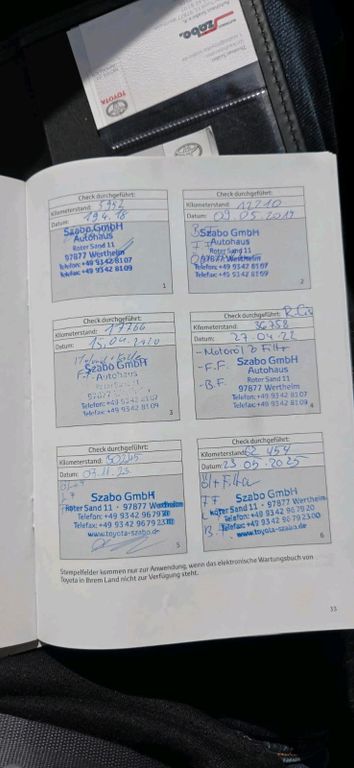 Szabo.
TOYOTA
Check durchgeführt:
Kilometerstand: 5952
Datum: 19.4.18
Szabo GmbH
Autohaus
Roter Sand 11
97877 Wertheim
Telefon: +49 9342 81 07
Telefax: +49 9342 81 09
1
Check durchgeführt:
Kilometerstand: 12210
Datum: 09.05.2019
Szabo GmbH
Autohaus
Roter Sand 11
97877 Wertheim
Telefon: +49 9342 81 07
Telefax: +49 9342 81 09
2
Check durchgeführt:
Kilometerstand: 17766
Datum: 15.04.2020
Szabo GmbH
Autohaus
Telefon: +49 9342 81 07
Telefax: +49 9342 81 09
3
Check durchgeführt:
Kilometerstand: 36758
Datum: 27.04.22
- Motoröl & Filter
- F.F.
- B.F.
Szabo GmbH
Autohaus
Roter Sand 11
97877 Wertheim
Telefon: +49 9342 81 07
Telefax: +49 9342 81 09
4
Check durchgeführt:
Kilometerstand:
Datum:
Szabo GmbH
Roter Sand 11 · 97877 Wertheim
Telefon: +49 93 42 96 79 20
Telefax: +49 93 42 96 79 23 00
www.toyota-szabo.de
5
Check durchgeführt:
Kilometerstand: 62 454
Datum: 23 05.2025
Öl + Filter
Szabo GmbH
Roter Sand 11 · 97877 Wertheim
Telefon: +49 93 42 96 79 20
Telefax: +49 93 42 96 79 23 00
www.toyota-szabo.de
6
Stempelfelder kommen nur zur Anwendung, wenn das elektronische Wartungsbuch von
Toyota in Ihrem Land nicht zur Verfügung steht.
33